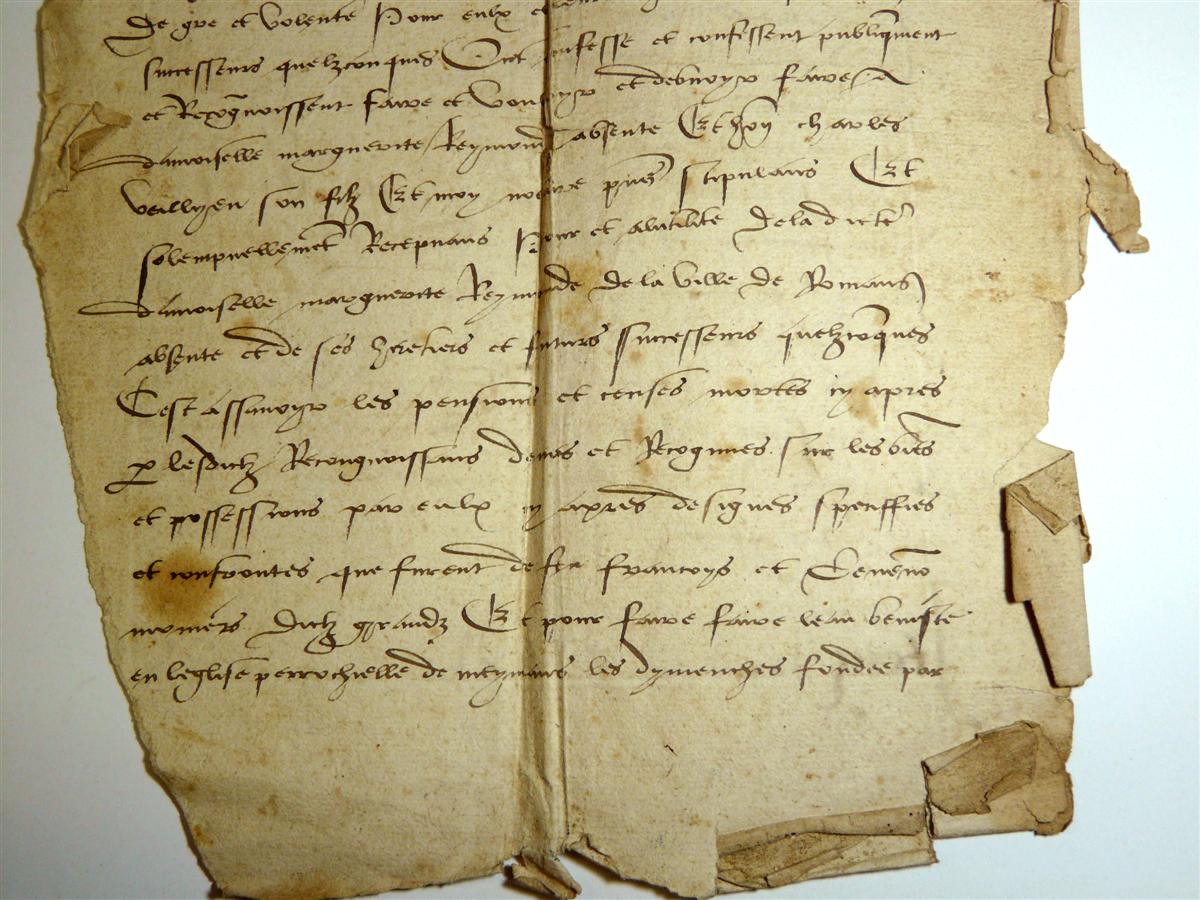 De gre et volente Pour eulx et
successeurs quelzconques Ont confesse et confissent publicquement
et Recognoissent faire et voulloyr et debvoyr faire A
damoiselle marguerite Reymonde absente Et hon charles
veillyeu son filz Et moy notaire pnes stipulans Et
solempnellemet Recepvans Pour et alutilite dela dicte
damoiselle marguerite Reymonde de la ville de Romans
absente et de ses heretiers et futurs successeurs quelzcoques
Cest assavoyr les pensions et censes mortes cy apres
p lesdictz Recongnoissans deues et Recognues sur les bies
et possessions par eulx cy apres designes speciffies
et confrontes que furent de feu francoys et
dictz grandz Et pour faire faire leau beniste
en leglise perrochielle de meymans les dymenches fondee par